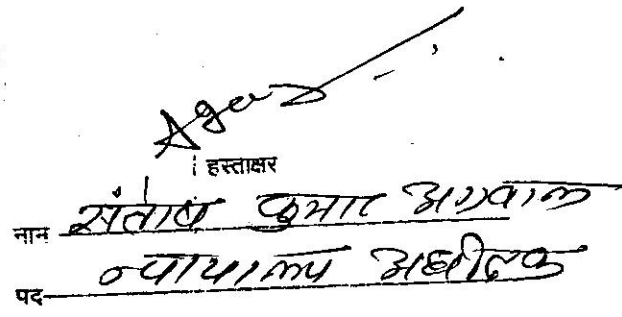 हस्ताक्षर
नाम संतोष कुमार अग्रवाल
पद न्यायालय अधीक्षक